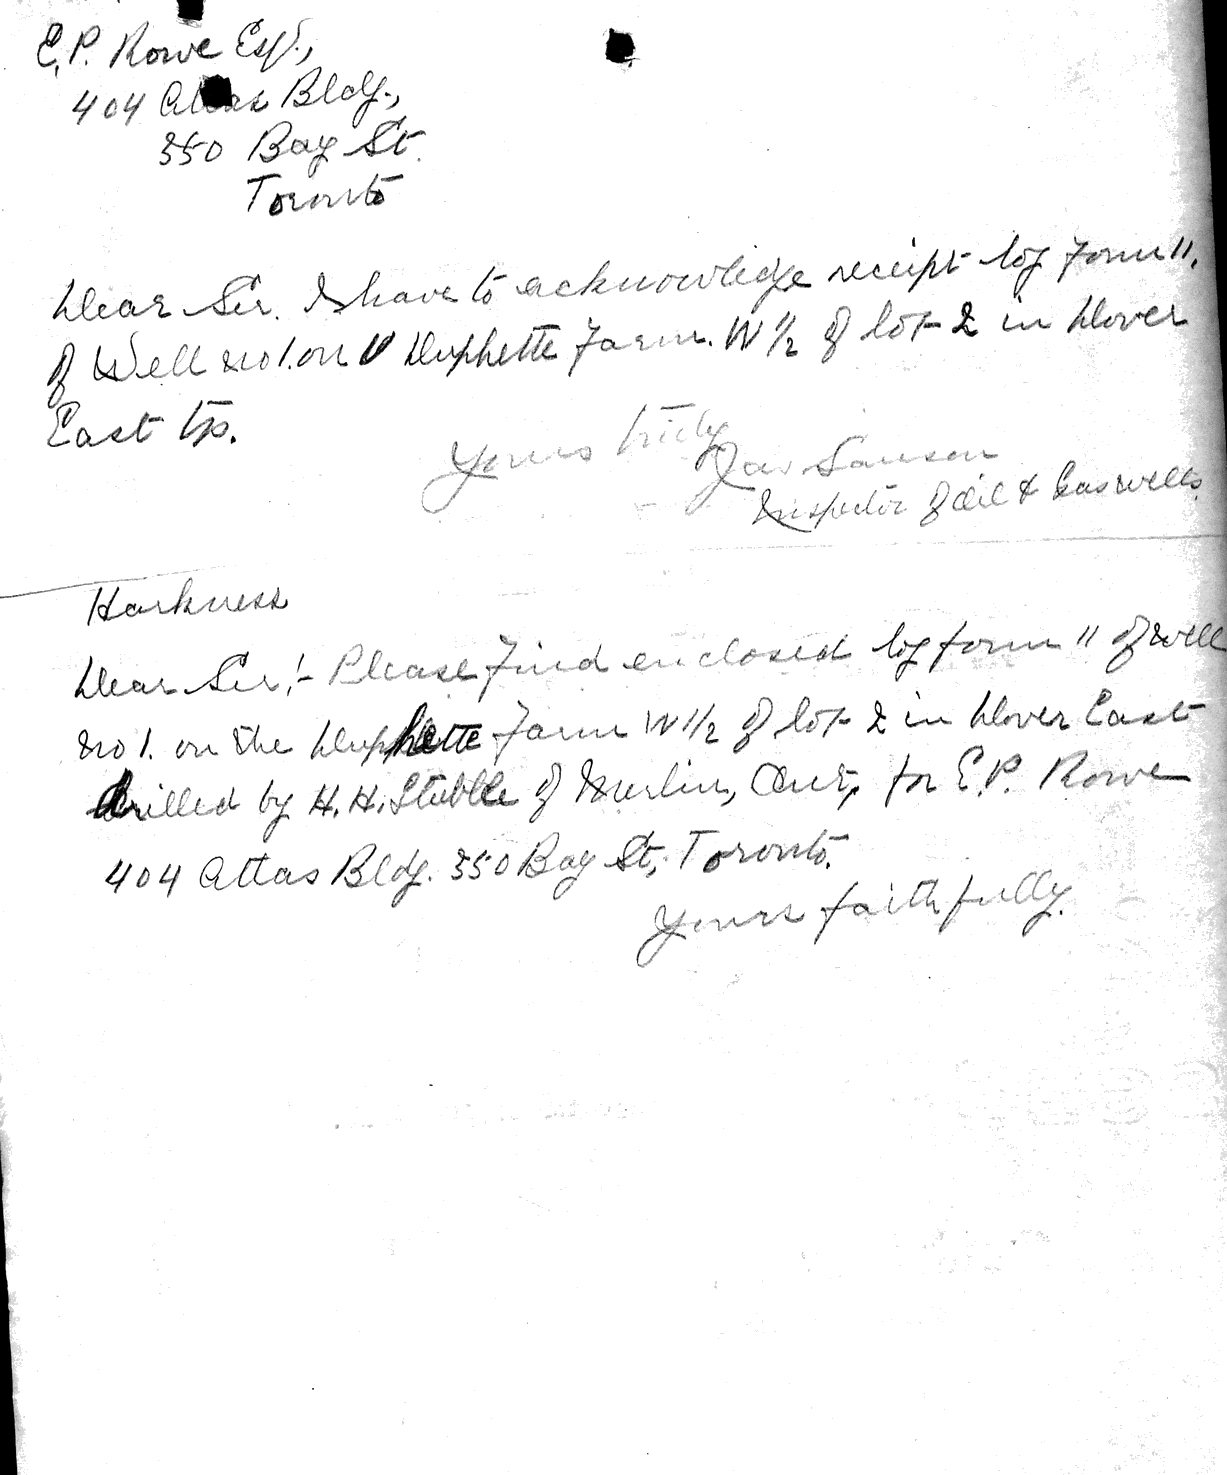 E.P. Rowe Esq.,
404 Atlas Bldg.,
350 Bay St.
Toronto
Dear Sir. I have to acknowledge receipt log form 11.
of Well no 1. on Duphette Farm. W 1/2 of lot 2 in Dover
East tp.
Yours truly
Jas Samson
Inspector of Oil & Gas wells.
Harkness
Dear Sir!- Please find enclosed log form 11 of well
no 1. on the Duphette Farm W 1/2 of lot 2 in Dover East
drilled by H. H. Stubble of Merlin, Ont, for E.P. Rowe
404 Atlas Bldg. 350 Bay St, Toronto.
Yours faithfully.